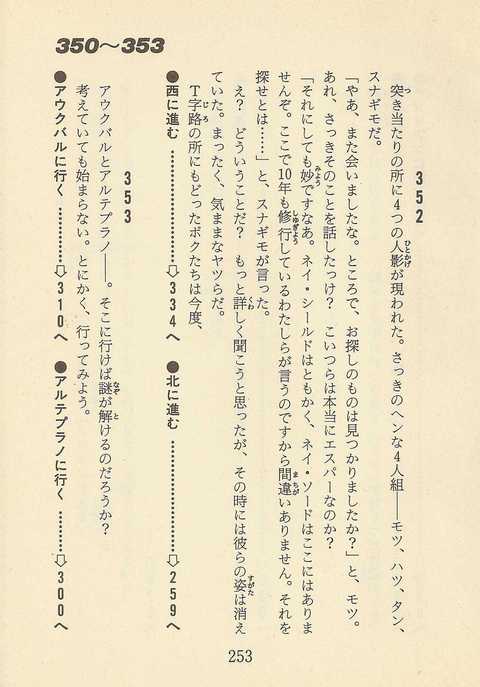 350〜353
352
突き当たりの所に4つの人影が現われた。さっきのヘンな4人組――モツ、ハツ、タン、
スナギモだ。
「やあ、また会いましたな。ところで、お探しのものは見つかりましたか？」と、モツ。
あれ、さっきそのことを話したっけ？　こいつらは本当にエスパーなのか？
「それにしても妙ですなあ。ネイ・シールドはともかく、ネイ・ソードはここにはありま
せんぞ。ここで10年も修行しているわたしらが言うのですから間違いありません。それを
探せとは……」と、スナギモが言った。
え？　どういうことだ？　もっと詳しく聞こうと思ったが、その時には彼らの姿は消え
ていた。まったく、気ままなヤツらだ。
T字路の所にもどったボクたちは今度、
●西に進む …………⇨334へ　●北に進む …………⇨259へ
353
アウクバルとアルテプラノ――。そこに行けば謎が解けるのだろうか？
考えていても始まらない。とにかく、行ってみよう。
●アウクバルに行く………⇨310へ　●アルテプラノに行く………⇨300へ
253